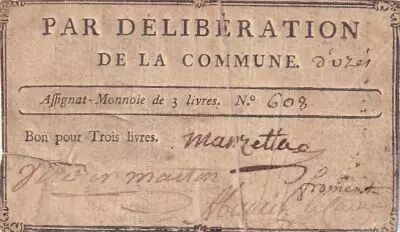 PAR DÉLIBÉRATION
DE LA COMMUNE. d'uzés
Assignat-Monnoie de 3 livres. N.º 608
Bon pour Trois livres.
froment